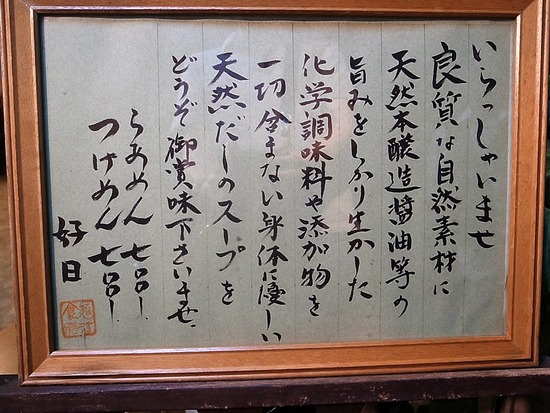 いらっしゃいませ
良質な自然素材に
天然本醸造醤油等の
旨みをしっかり生かした
化学調味料や添加物を
一切含まない身体に優しい
天然だしのスープを
どうぞ御賞味下さいませ。
らあめん 七〇〇!
つけめん 七〇〇!
好日